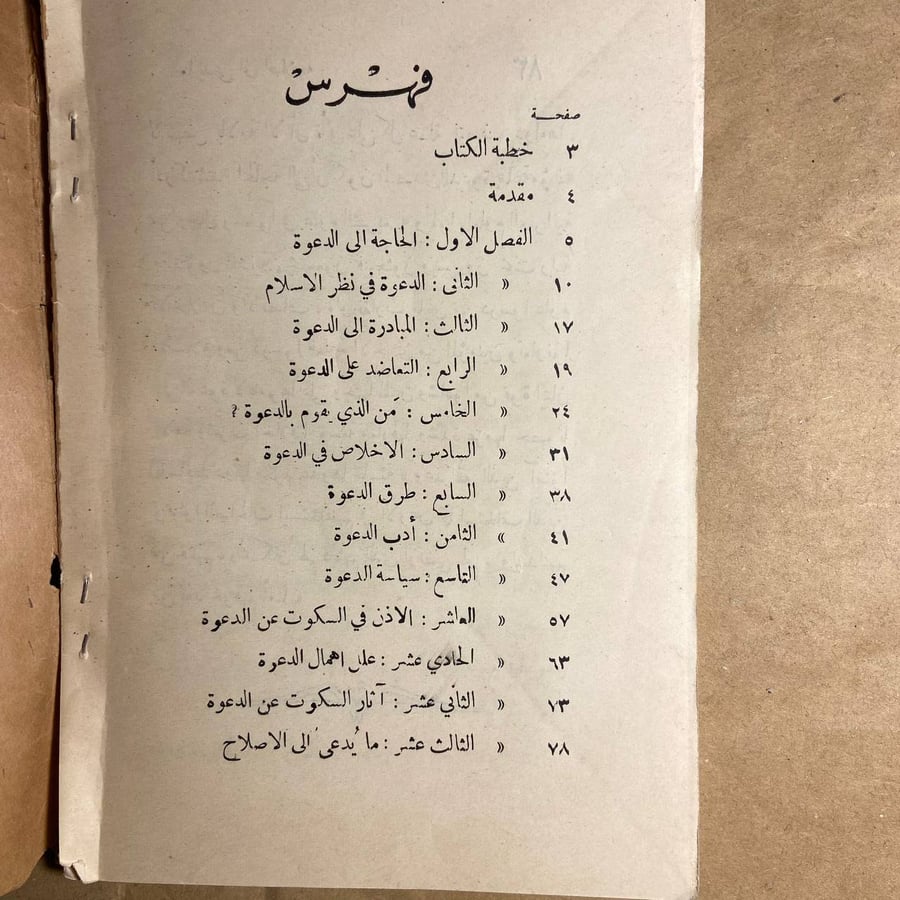 فهرس
صفحة
٣ خطبة الكتاب
٤ مقدمة
٥ الفصل الاول : الحاجة الى الدعوة
١٠ » الثانى : الدعوة في نظر الاسلام
١٧ » الثالث : المبادرة الى الدعوة
١٩ » الرابع : التعاضد على الدعوة
٢٤ » الخامس : مَن الذي يقوم بالدعوة ؟
٣١ » السادس : الاخلاص في الدعوة
٣٨ » السابع : طرق الدعوة
٤١ « الثامن : أدب الدعوة
٤٧ » التاسع : سياسة الدعوة
٥٧ » العاشر : الاذن في السكوت عن الدعوة
٦٣ » الحادي عشر : علل اهمال الدعوة
٧٣ » الثاني عشر : آثار السكوت عن الدعوة
٧٨ » الثالث عشر : ما يُدعى الى الاصلاح